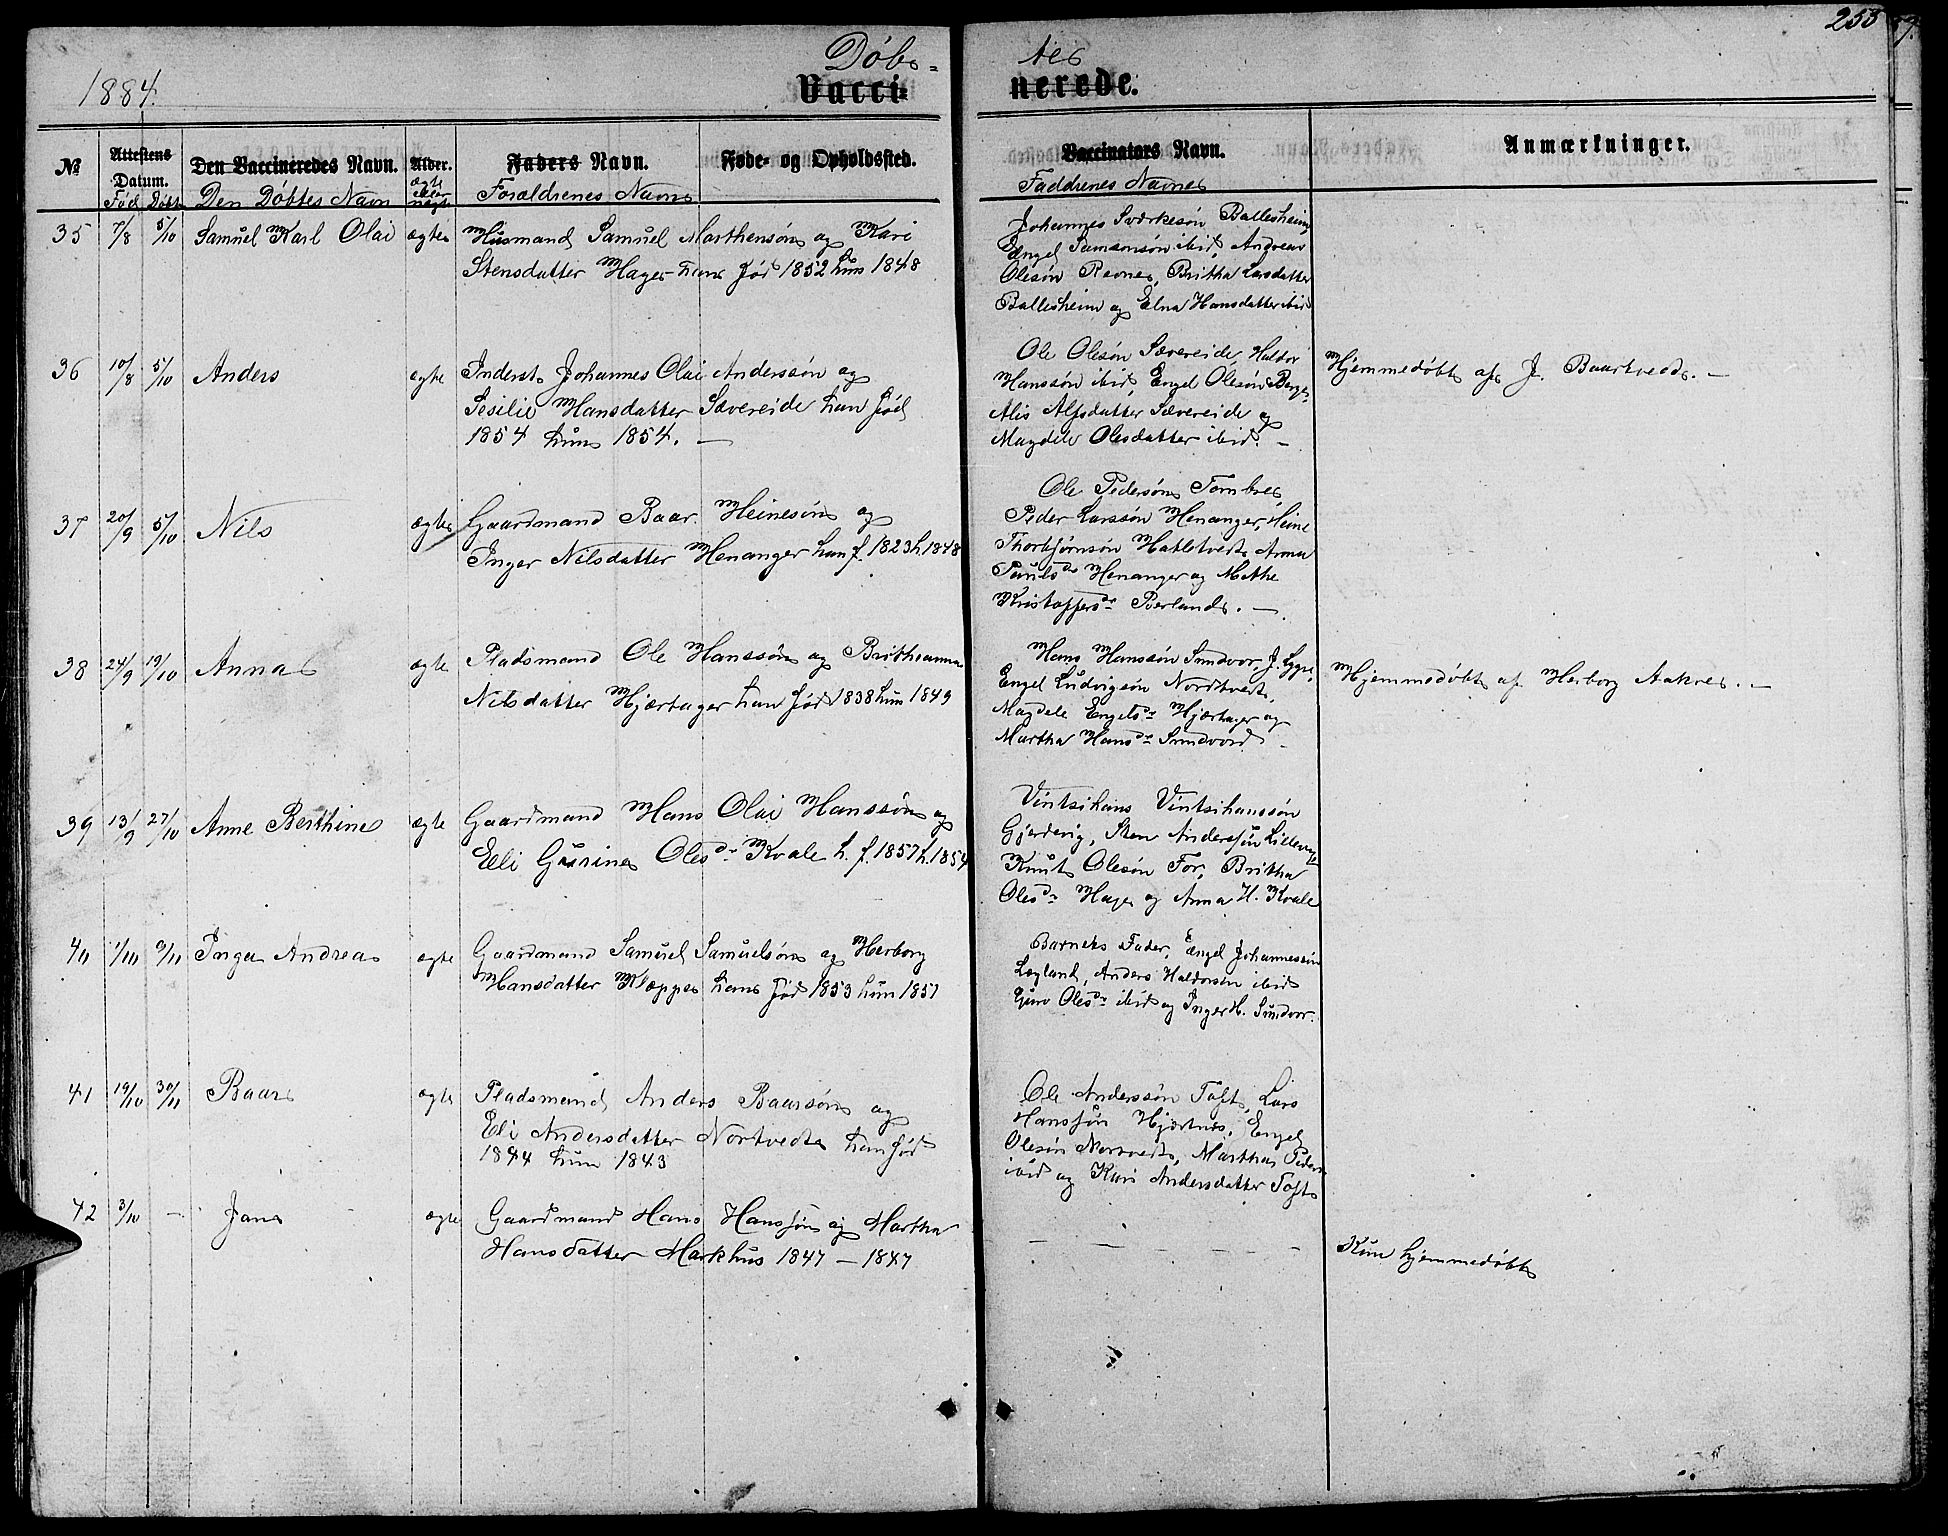 253
1884.
Døbs= tes
Vacci= nerede.
№ Attestens Datum. Den Vaccineredes Navn. Alder. Faders Navn. Føde- og Opholdssted. Vaccinators Navn. Anmærkninger.
Født Døbt Den Døbtes Navn ægte eller uægte Forældrenes Navne Faddrenes Navne
35 7/8 5/10 Samuel Karl Olai ægte Husmand Samuel Marthensøn og Kari
Stensdatter Hage han född 1852 hun 1848
Johannes Sværkesøn Ballesheim
Engel Samsonsøn ibid, Andreas
Olesøn Revne, Britha Larsdatter
Ballesheim og Elna Hansdatter ibid
36 10/8 5/10 Anders ægte Inderst Johannes Olai Anderssøn og
Sesilie Hansdatter Sævereide han född
1854 hun 1854. —
Ole Olesøn Sævereide, Haldor
Hanssøn ibid, Engel Olesøn Berge
Alis Alfsdatter Sævereide og
Magdele Olesdatter ibid. —
Hjemmedøbt af J. Baartvedt. —
37 20/9 5/10 Nils ægte Gaardmand Baar Heinesøn og
Inger Nilsdatter Henanger han f. 1823 h. 1848
Ole Pedersøn Tombre,
Peder Larssøn Henanger, Heine
Thorbjørnsøn Hatletvedt, Anna
Paulsdr Henanger og Methe
Kristoffersdr Søerland. —
38 24/9 19/10 Anna ægte Pladsmand Ole Hanssøn og Brithanna
Nilsdatter Hjærtager han född 1838 hun 1849
Hans Hanssøn Sundvor, J. Lygre,
Engel Ludvigsøn Nordtvedt,
Magdele Engelsdr Hjærtager og
Martha Hansdr Sundvor —
Hjemmedøbt af Herborg Aakre. —
39 13/9 27/10 Anne Berthine ægte Gaardmand Hans Olai Hanssøn og
Elli Gurine Olesdr Kvale h. f. 1857 h. 1854
Vintsihans Vintsihanssøn
Gjerdevig, Sten Anderssøn Lillevige
Knut Olesøn For, Britha
Olesdr Hage og Anna H. Kvale
40 1/10 9/11 Inga Andrea ægte Gaardmand Samuel Samuelsøn og Herborg
Hansdatter Kleppe han född 1853 hun 1857
Barnets Fader, Engel Johannessøn
Legland, Anders Haldorsøn ibid
Guro Olesdr ibid og Inger H. Sundvor.
41 19/10 30/11 Baar ægte Pladsmand Anders Baarsøn og
Eli Andersdatter Nortvedt han född
1844 hun 1843
Ole Anderssøn Toft, Lars
Hanssøn Hjertnes, Engel
Olesøn Nortvedt, Martha Peders
ibid og Kari Andersdatter Toft
42 3/10 — Jan ægte Gaardmand Hans Hanssøn og Martha
Hansdatter Markhus 1847 — 1847
— — — — —
Kun hjemmedøbt